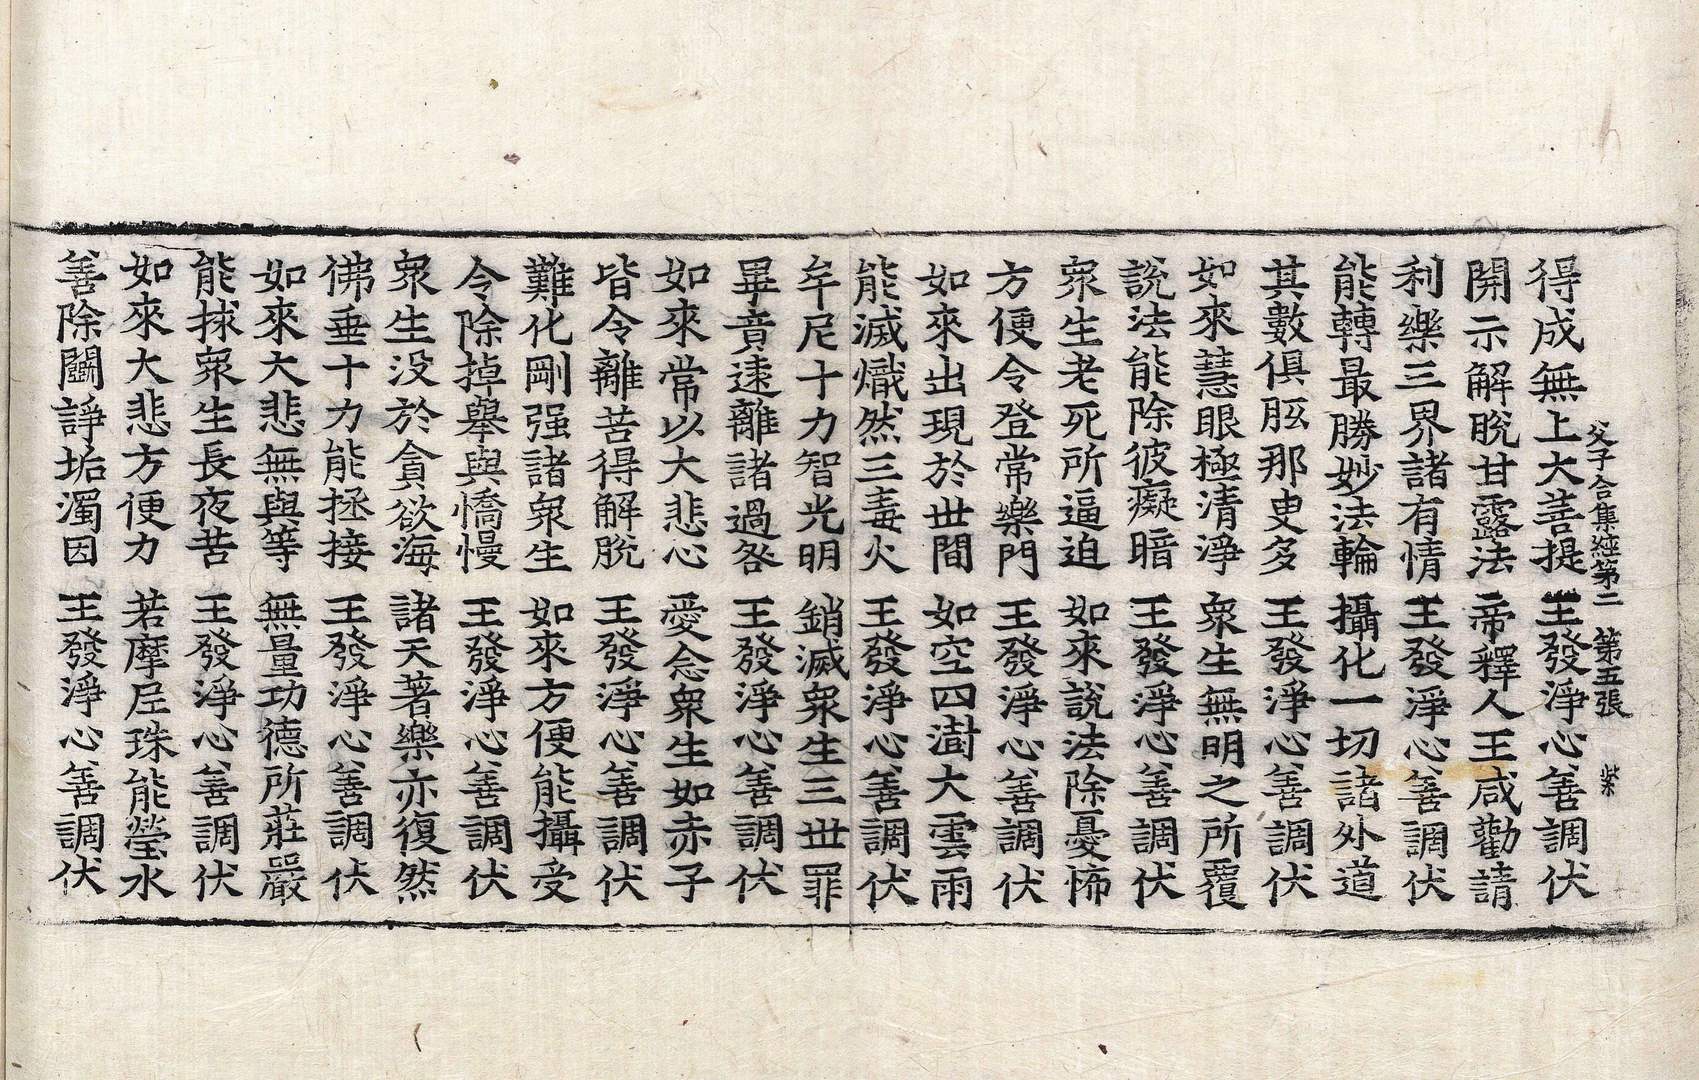 父子合集經第二 第五張 柴
得成無上大菩提 王發淨心善調伏
開示解脫甘露法 帝釋人王咸勸請
利樂三界諸有情 王發淨心善調伏
能轉最勝妙法輪 攝化一切諸外道
其數俱胝那叟多 王發淨心善調伏
如來慧眼極清淨 衆生無明之所覆
說法能除彼癡暗 王發淨心善調伏
衆生老死所逼迫 如來說法除憂怖
方便令登常樂門 王發淨心善調伏
如來出現於世間 如空四澍大雲雨
能滅熾然三毒火 王發淨心善調伏
牟尼十力智光明 銷滅衆生三世罪
畢竟遠離諸過咎 王發淨心善調伏
如來常以大悲心 愛念衆生如赤子
皆令離苦得解脫 王發淨心善調伏
難化剛强諸衆生 如來方便能攝受
令除掉舉與憍慢 王發淨心善調伏
衆生没於貪欲海 諸天著樂亦復然
佛垂十力能拯接 王發淨心善調伏
如來大悲無與等 無量功德所莊嚴
能捄衆生長夜苦 王發淨心善調伏
如來大悲方便力 若摩尼珠能瑩水
善除鬬諍垢濁因 王發淨心善調伏